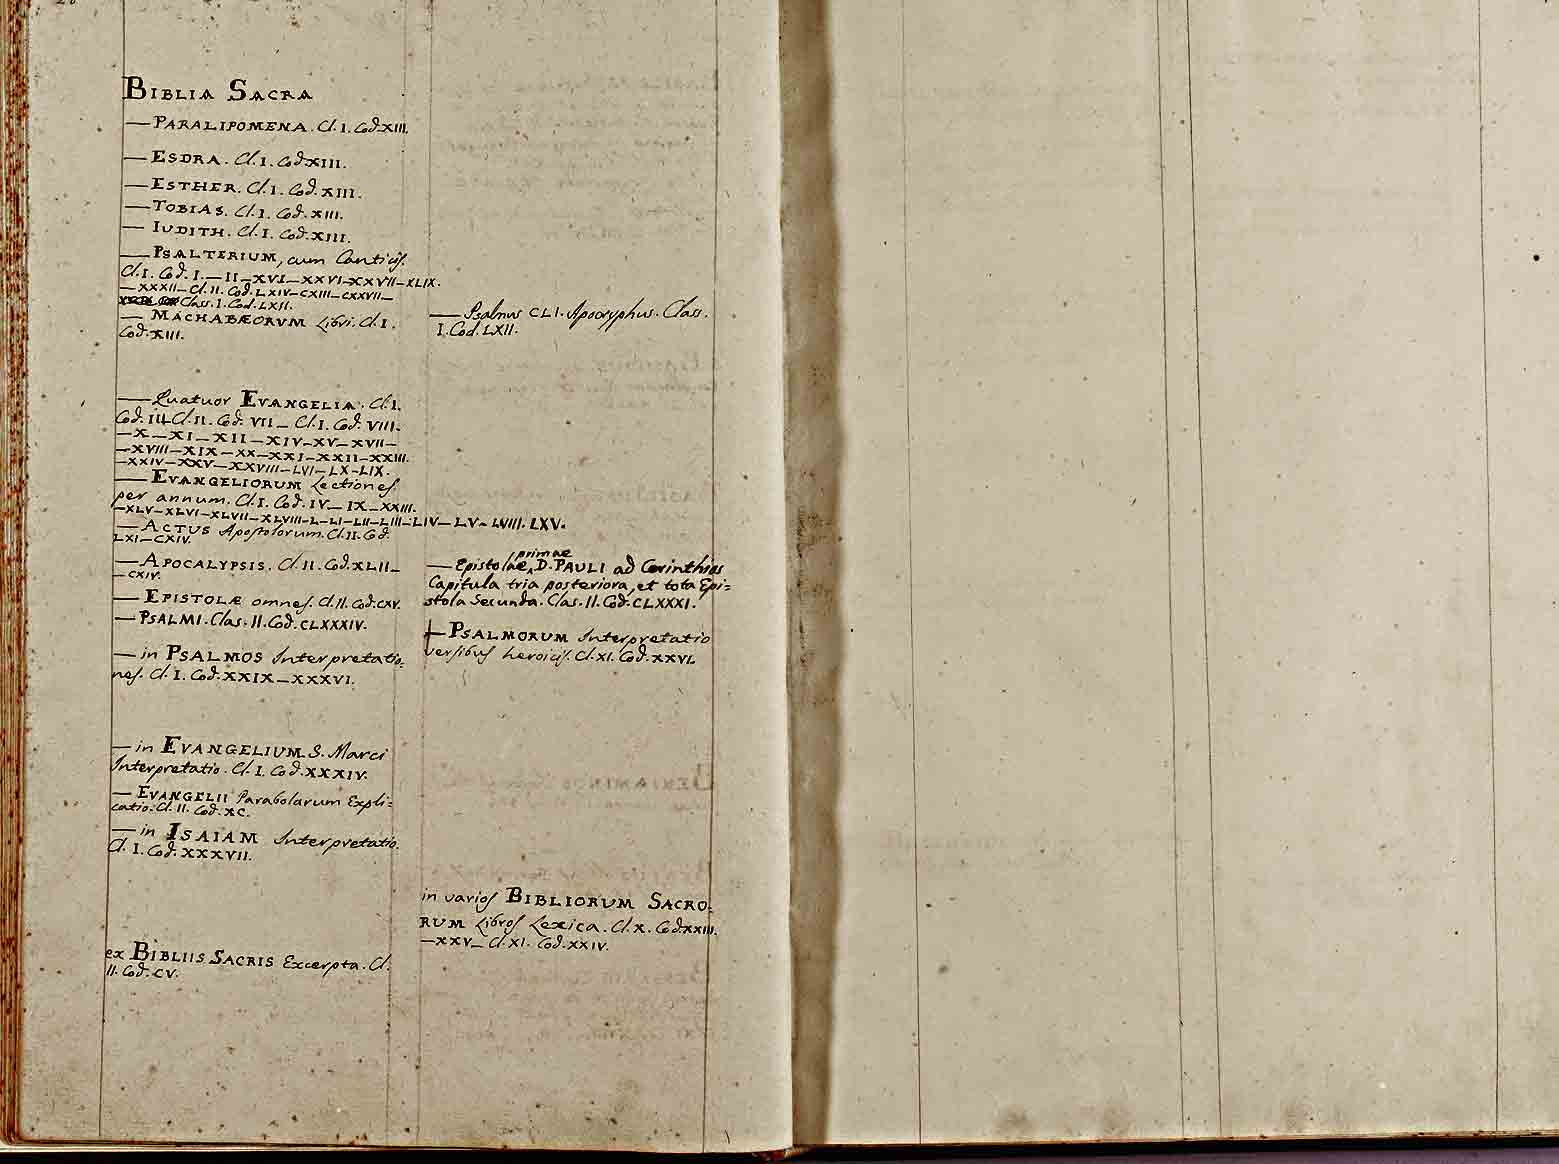 BIBLIA SACRA
— PARALIPOMENA. Cl. I. Cod. XIII.
— ESDRA. Cl. I. Cod. XIII.
— ESTHER. Cl. I. Cod. XIII.
— TOBIAS. Cl. I. Cod. XIII.
— IUDITH. Cl. I. Cod. XIII.
— PSALTERIUM, cum Canticis.
Cl. I. Cod. I. — II — XVI — XXVI — XXVII — XLIX.
— XXXII — Cl. II. Cod. LXIV — CXIII — CXXVII —
Class. I. Cod. LXII.
— MACHABÆORUM Libri. Cl. I.
Cod. XIII.
— Quatuor EVANGELIA. Cl. I.
Cod. III. Cl. II. Cod. VII — Cl. I. Cod. VIII.
— X — XI — XII — XIV — XV — XVII —
— XVIII — XIX — XX — XXI — XXII — XXIII.
— XXIV — XXV — XXVIII — LVI — LX — LIX.
— EVANGELIORUM Lectiones
per annum. Cl. I. Cod. IV — IX — XXIII.
— XLV — XLVI — XLVII — XLVIII — L — LI — LII — LIII — LIV — LV — LVIII. LXV.
— ACTUS Apostolorum. Cl. II. Cod.
LXI — CXIV.
— APOCALYPSIS. Cl. II. Cod. XLII —
— CXIV.
— EPISTOLÆ omnes. Cl. II. Cod. CXV.
— PSALMI. Clas. II. Cod. CLXXXIV.
— in PSALMOS Interpretatio=
nes. Cl. I. Cod. XXIX — XXXVI.
— in EVANGELIUM S. Marci
Interpretatio. Cl. I. Cod. XXXIV.
— EVANGELII Parabolarum Expli=
catio. Cl. II. Cod. XC.
— in ISAIAM Interpretatio.
Cl. I. Cod. XXXVII.
ex BIBLIIS SACRIS Excerpta. Cl.
II. Cod. CV.
— Psalmus CLI. Apocryphus. Class.
I. Cod. LXII.
primae
— Epistolae D. PAULI ad Corinthios
Capitula tria posteriora, et tota Epi=
stola Secunda. Clas. II. Cod. CLXXXI.
— PSALMORUM Interpretatio
versibus heroicis. Cl. XI. Cod. XXVI.
in varios BIBLIORUM SACRO=
RUM Libros Lexica. Cl. X. Cod. XXIII.
— XXV — Cl. XI. Cod. XXIV.